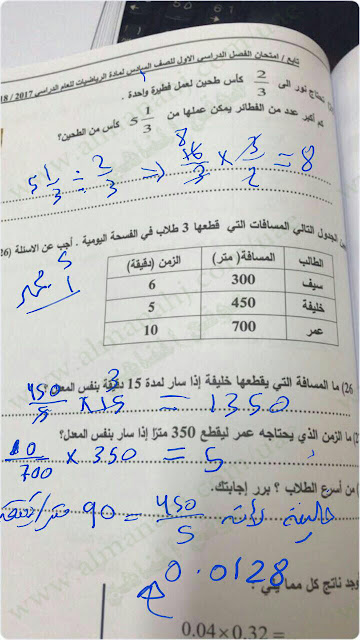 تابع / امتحان الفصل الدراسي الاول للصف السادس لمادة الرياضيات للعام الدراسي 2017 / 18
تحتاج نور الى 2/3 كأس طحين لعمل فطيرة واحدة .
كم أكبر عدد من الفطائر يمكن عملها من 5 1/3 كأس من الطحين؟
5 1/3 ÷ 2/3 ⇒ 16/3 × 3/2 = 8
8
الجدول التالي المسافات التي قطعها 3 طلاب في الفسحة اليومية . أجب عن الاسئلة (26
الطالب المسافة( متر) الزمن (دقيقة)
سيف 300 6
خليفة 450 5
عمر 700 10
26) ما المسافة التي يقطعها خليفة إذا سار لمدة 15 دقيقة بنفس المعدل؟
450/5 × 15 = 1350
3
ما الزمن الذي يحتاجه عمر ليقطع 350 مترًا إذا سار بنفس المعدل؟
10/700 × 350 = 5
من أسرع الطلاب ؟ برر إجابتك.
خليفة لأنه 450/5 = 90 متر/دقيقة
0.0128
وجد ناتج كل مما يلي :
0.04 × 0.32 =